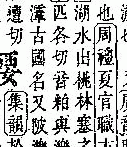 也周禮夏官職
湖水出桃林塞
匹各切音粕與
澤古國名又陂
切
集韻